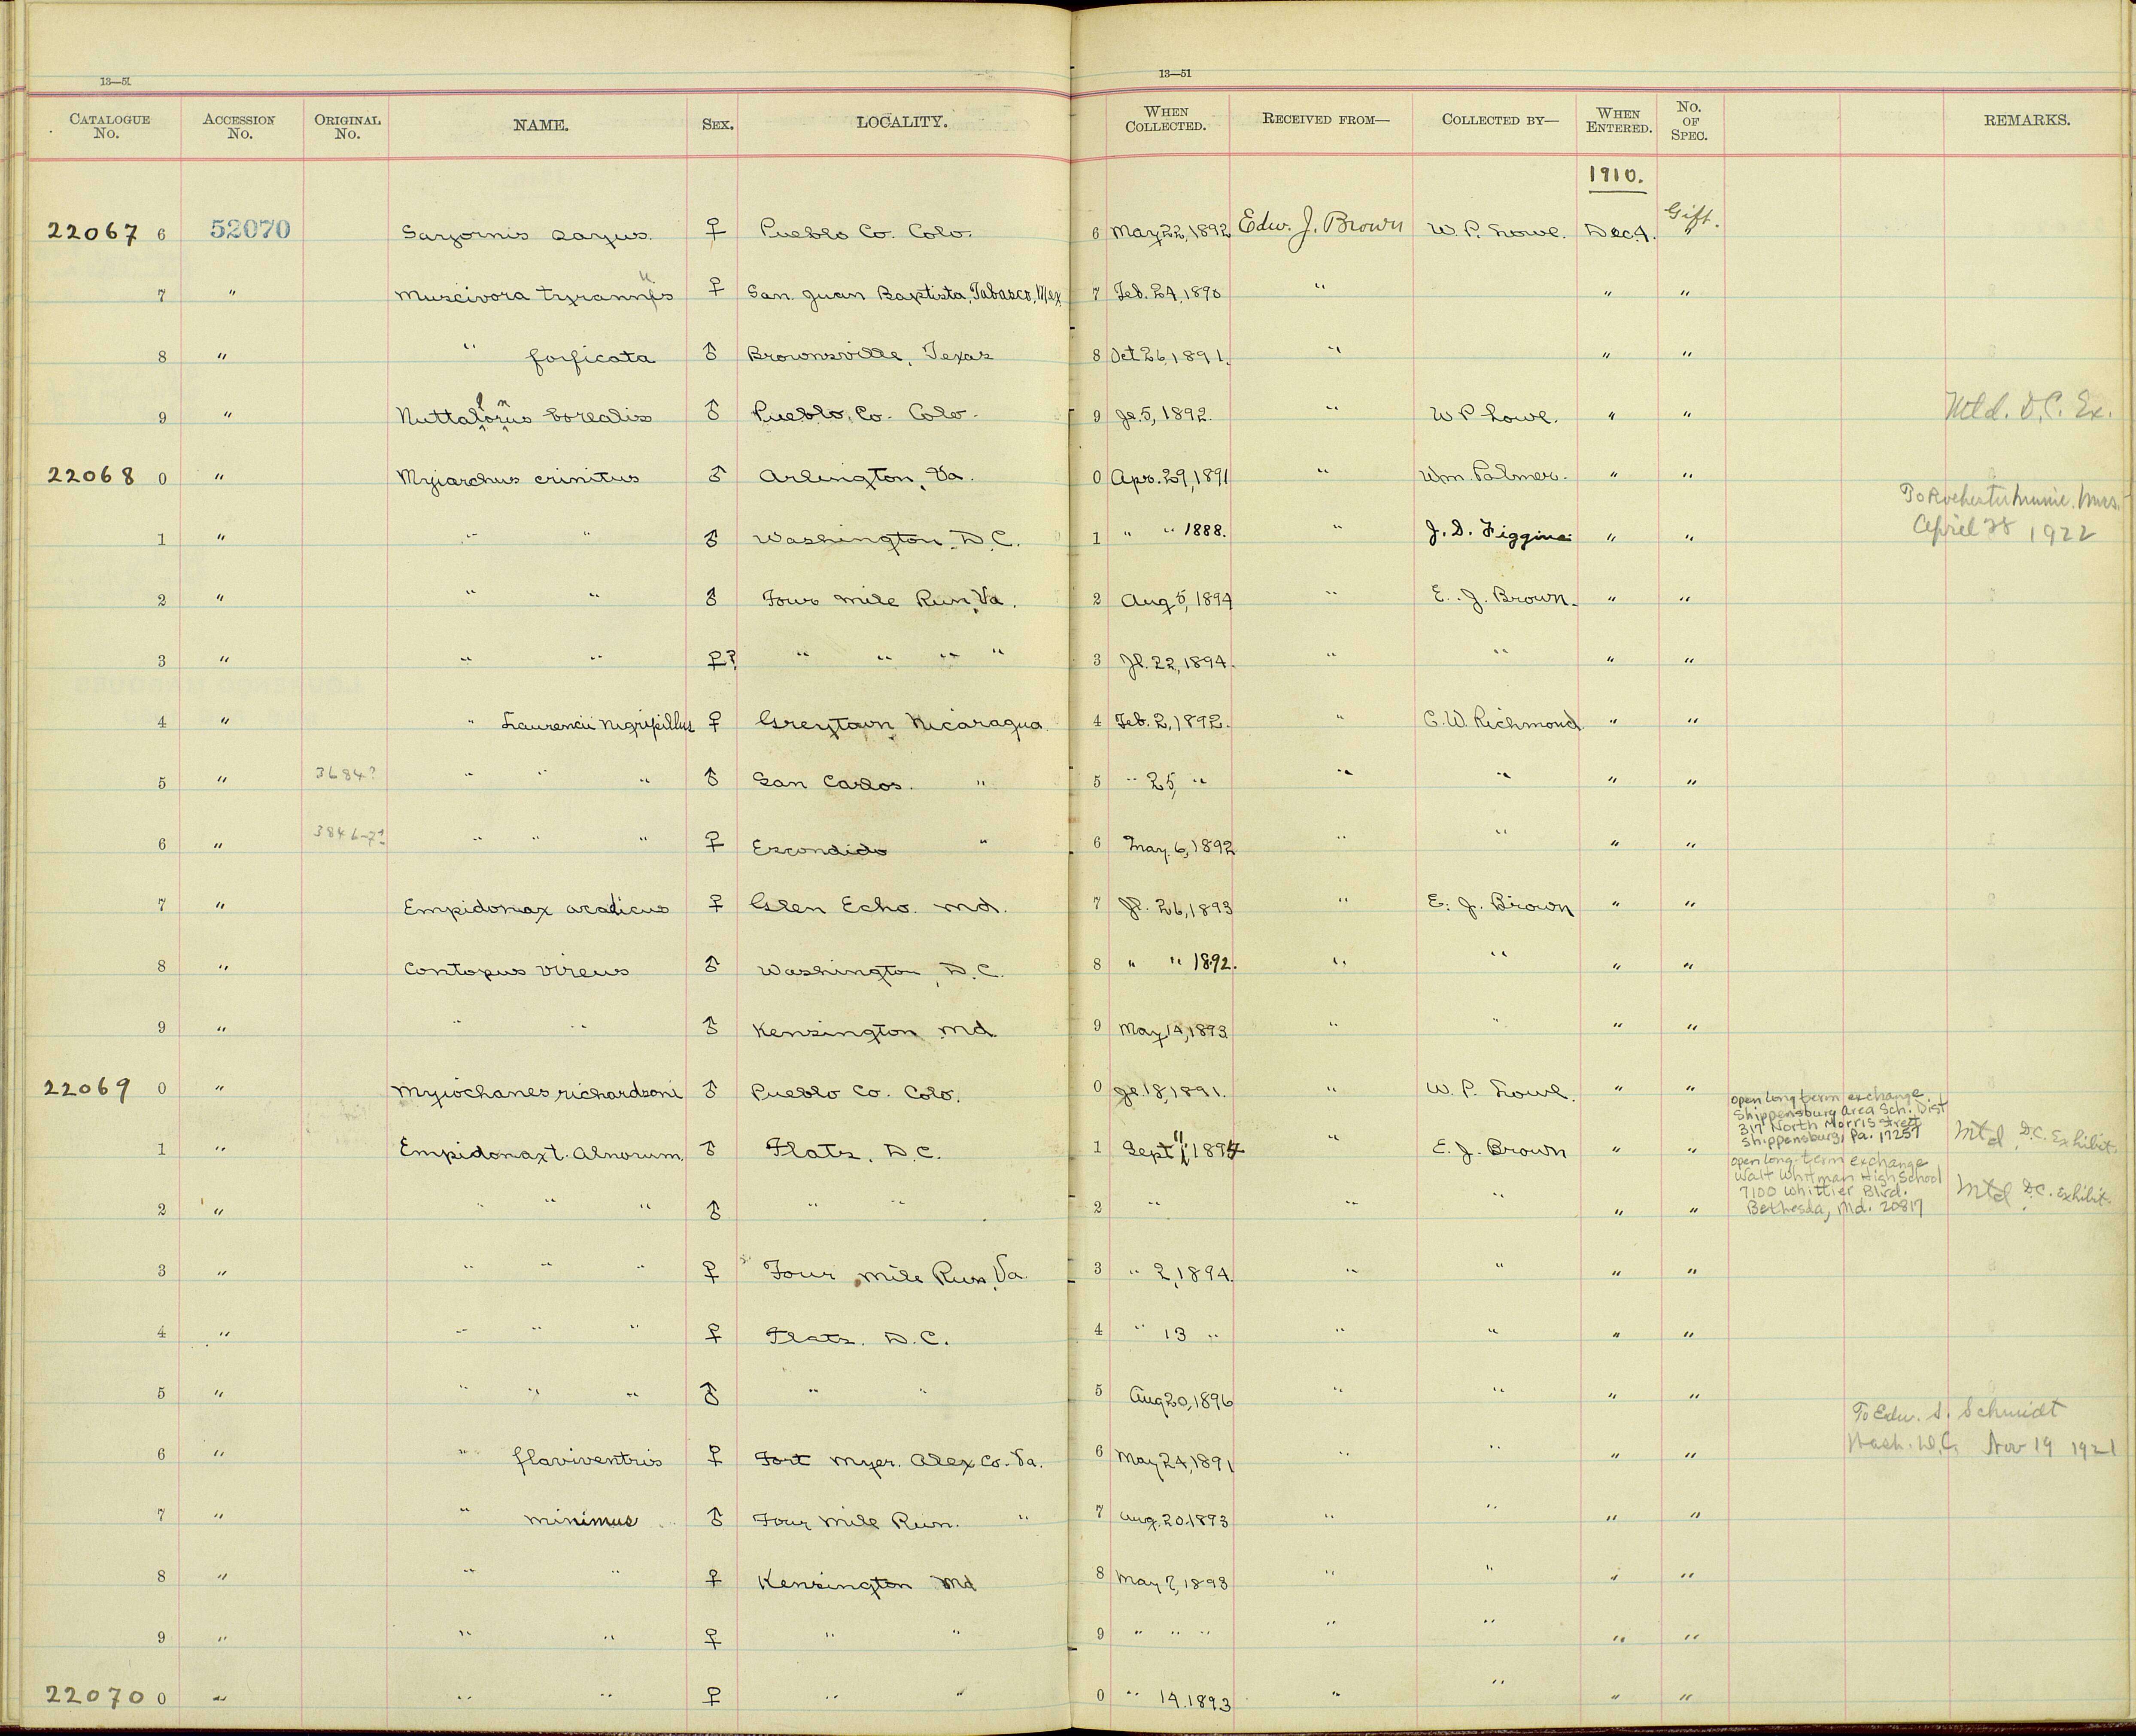 13—51 13—51
CATALOGUE No. ACCESSION No. ORIGINAL No. NAME. SEX. LOCALITY. WHEN COLLECTED. RECEIVED FROM— COLLECTED BY— WHEN ENTERED. No. OF SPEC. REMARKS.
1910.
22067 6 52070 Sayornis sayus. ♀ Pueblo Co. Colo. 6 May 22, 1892 Edw. J. Brown W. P. Lowe. Dec. 4. Gift. "
7 " Muscivora tyrannus ♀ San Juan Baptista, Tabasco, Mex 7 Feb. 24, 1890 " " "
8 " " forficata ♂ Brownsville, Texas 8 Oct 26, 1891. " " "
9 " Nuttalornis borealis ♂ Pueblo, Co. Colo. 9 Je. 5, 1892. " W P Lowe. " " Mtd. D.C. Ex.
22068 0 " Myiarchus crinitus ♂ Arlington, Va. 0 Apr. 29, 1891 " Wm. Palmer. " "
1 " " " ♂ Washington, D.C. 1 " " 1888. " J. D. Figgins. " " To Rochester Munic. Mus. April 28 1922
2 " " " ♂ Four Mile Run, Va. 2 Aug 5, 1894 " E. J. Brown. " "
3 " " " ♀? " " " " 3 Jl. 22, 1894. " " " "
4 " " Laurencii nigripillus ♀ Greytown Nicaragua 4 Feb. 2, 1892. " C. W. Richmond " "
5 " 3684? " " " ♂ San Carlos. " 5 " 25, " " " " "
6 " 3846-7? " " " ♀ Escondido " 6 May. 6, 1892 " " " "
7 " Empidonax acadicus ♀ Glen Echo. Md. 7 Jl. 26, 1893 " E. J. Brown " "
8 " Contopus virens ♂ Washington, D.C. 8 " " 1892. " " " "
9 " " " ♂ Kensington Md 9 May 14, 1893 " " " "
22069 0 " Myiochanes richardsoni ♂ Pueblo Co. Colo. 0 Je. 18, 1891. " W. P. Lowe. " "
open long term exchange
Shippensburg Area Sch. Dist
317 North Morris Street
Shippensburg, Pa. 17257
1 " Empidonax t. Alnorum. ♂ Flats, D.C. 1 Sept 11, 1894 " E. J. Brown " " Mtd D.C. Exhibit.
open long-term exchange
Walt Whitman High School
7100 Whittier Blvd.
Bethesda, Md. 20817
2 " " " " ♂ " " 2 " " " " " Mtd D.C. Exhibit.
3 " " " " ♀ Four Mile Run, Va. 3 " 2, 1894. " " " "
4 " " " " ♀ Flats. D.C. 4 " 13 " " " " "
5 " " " " ♂ " " 5 Aug 20, 1896 " " " "
To Edw. S. Schmidt
Wash. D.C. Nov 19 1921
6 " " flaviventris ♀ Fort Myer. Alex Co. Va. 6 May 24, 1891 " " " "
7 " " minimus ♂ Four Mile Run. " 7 Aug. 20, 1893 " " " "
8 " " " ♀ Kensington Md 8 May 7, 1893 " " " "
9 " " " ♀ " " 9 " " " " " " "
22070 0 " " " ♀ " " 0 " 14. 1893 " " " "